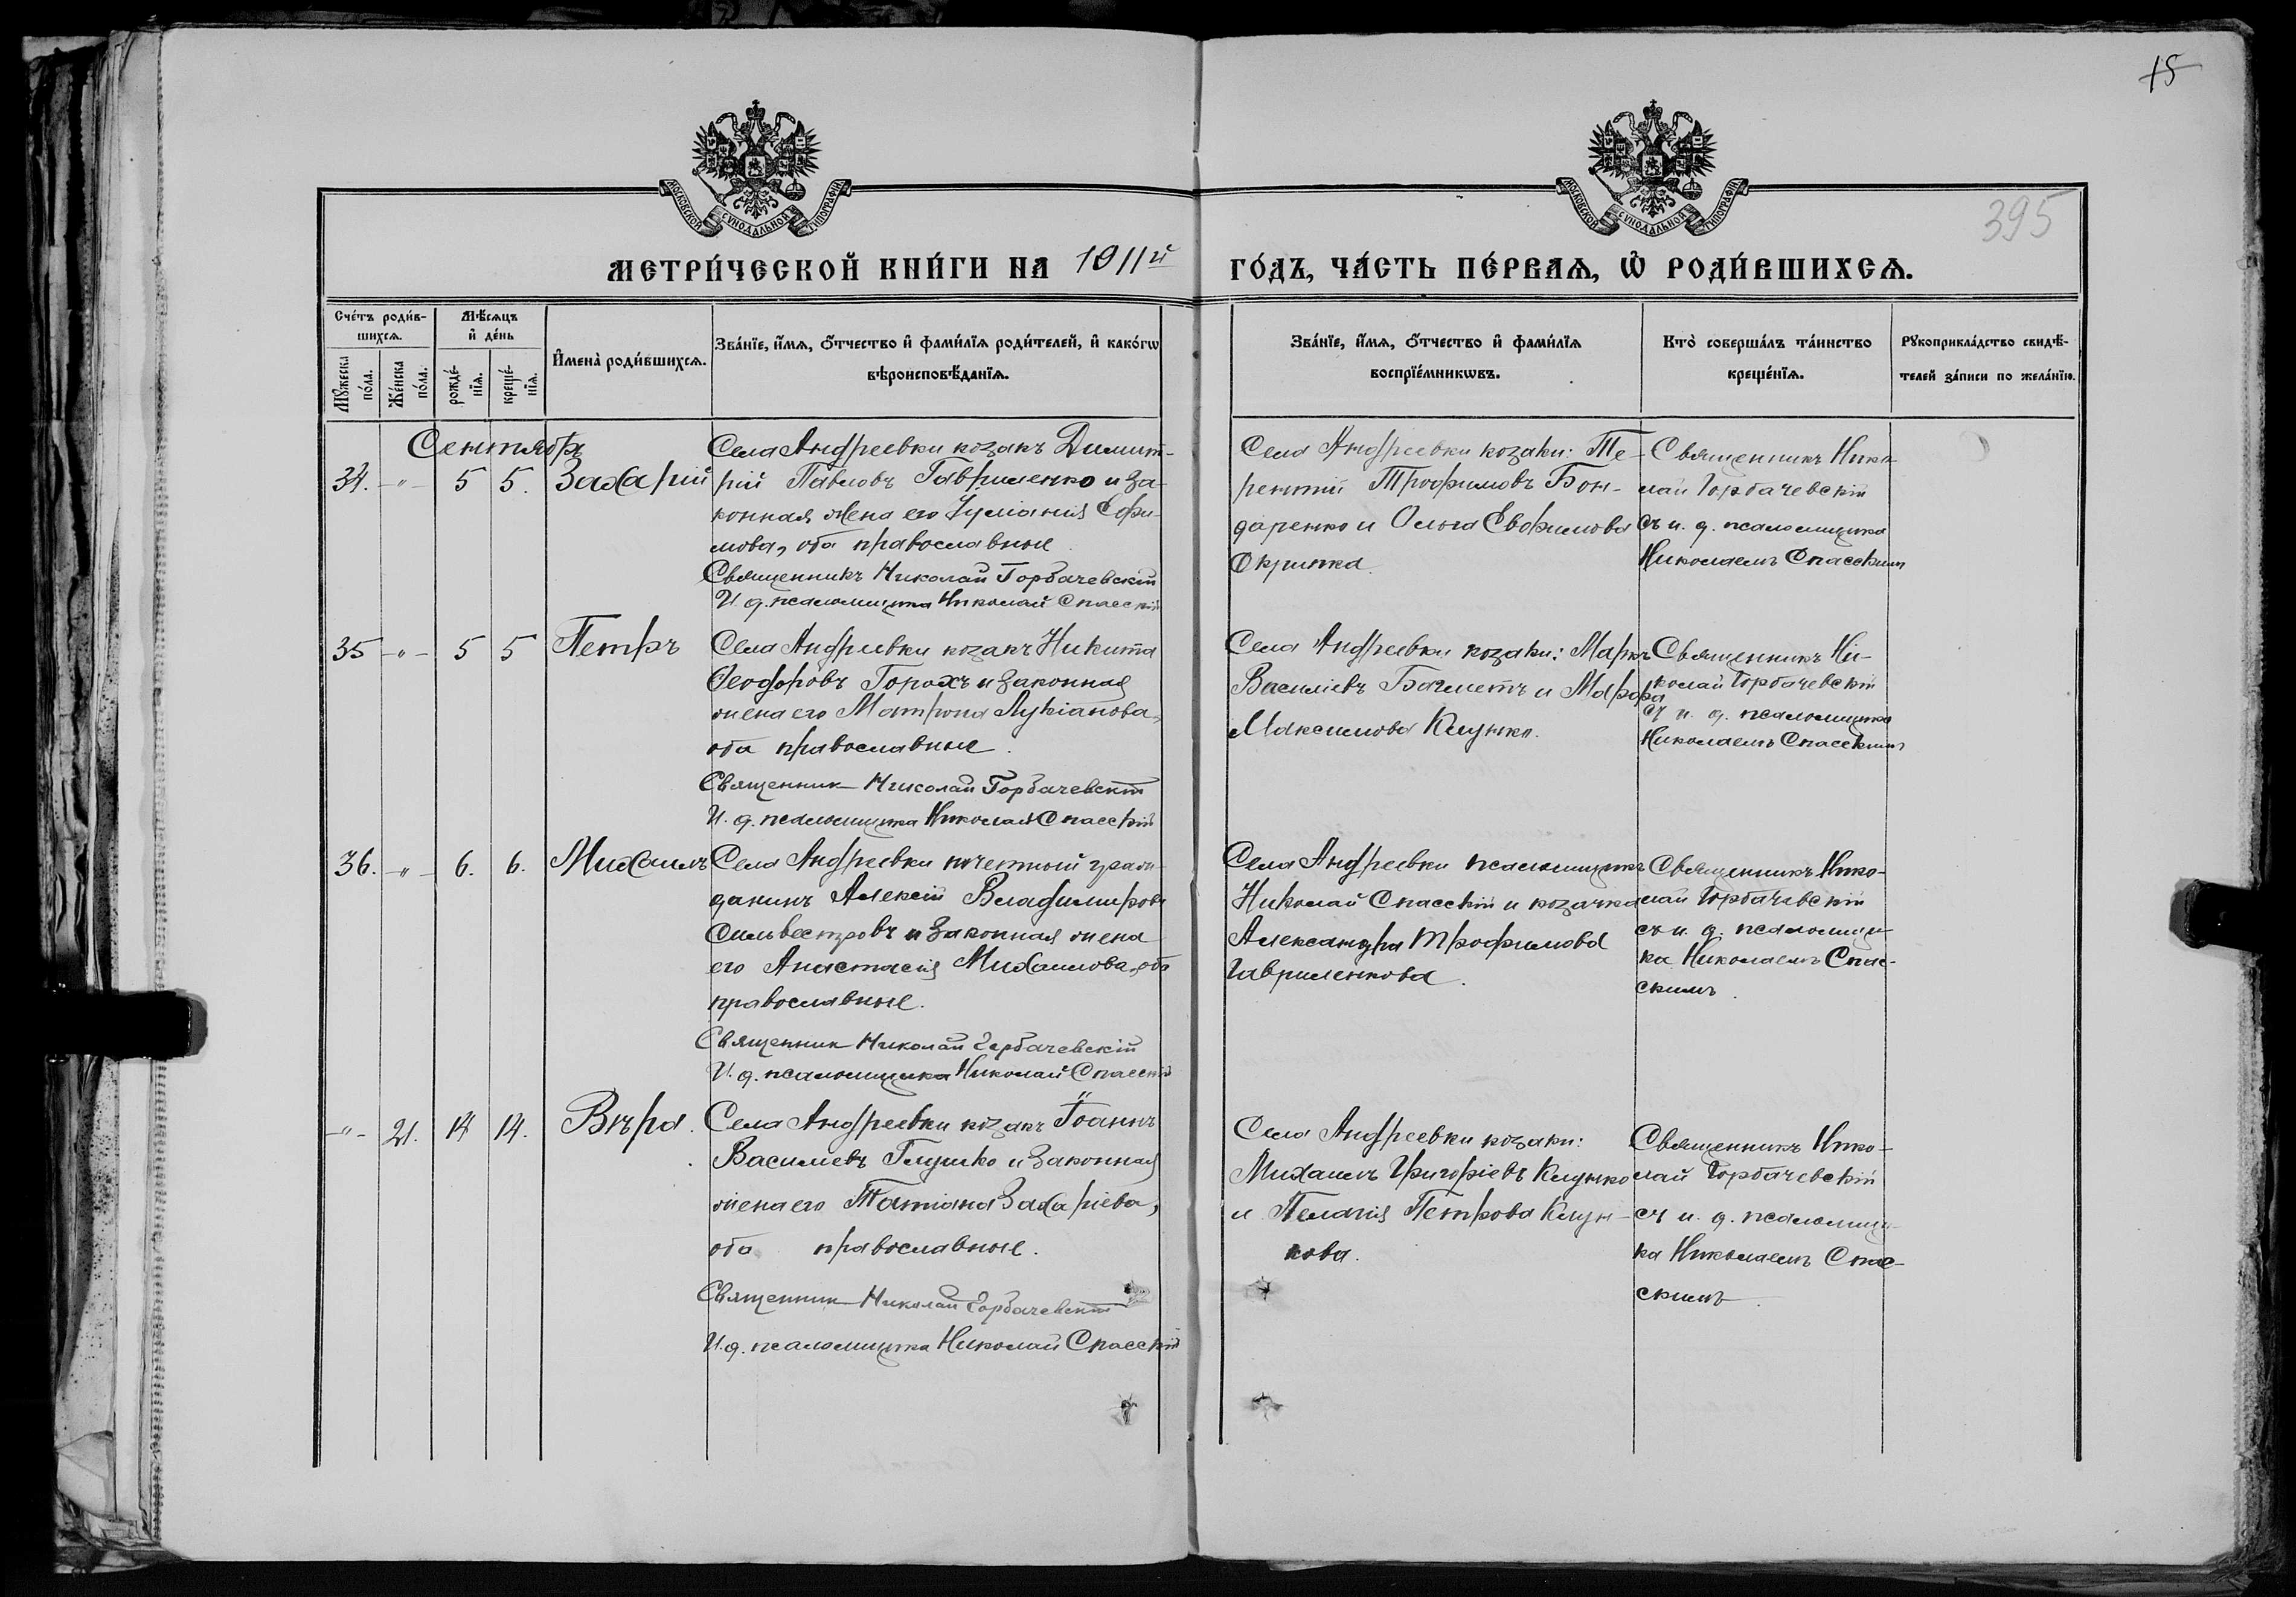 15
395
МОСКОВСКОЙ СѴНОДАЛЬНОЙ ТИПОГРАФІИ
МОСКОВСКОЙ СѴНОДАЛЬНОЙ ТИПОГРАФІИ
МЕТРИ́ЧЕСКОЙ КНИ́ГИ НА 1911й ГО́ДЪ, ЧА́СТЬ ПЕ́РВАѦ, Ѽ РОДИ́ВШИХСѦ.
Сче́тъ роди́в-
шихсѧ.
Мꙋ́жеска по́ла.
Же́нска по́ла.
Мѣ́сѧцъ
и҆ де́нь
рожде́-
нїѧ.
креще́-
нїѧ.
И҆мена̀ роди́вшихсѧ.
Зва́нїе, и҆́мѧ, ѻ҆́тчество и҆ фами́лїѧ роди́телей, и҆ како́гѡ
вѣроисповѣ́данїѧ.
Зва́нїе, и҆́мѧ, ѻ҆́тчество и҆ фами́лїѧ
воспрїе́мникѡвъ.
Кто̀ соверша́лъ та́инство
креще́нїѧ.
Рꙋкоприкла́дство свидѣ́-
телей за́писи по жела́нїю.
Сентябрь
34. -"- 5 5. Захарій
Села Андреевки козакъ Димит-
рій Павловъ Гавриленко и за-
конная жена его Іуліанія Ефи-
мова, оба православные
Священникъ Николай Горбачевскій
И. д. псаломщика Николай Спасскій
Села Андреевки козаки: Те-
рентій Трофимовъ Бон-
даренко и Ольга Евфимова
Окритка.
Священникъ Нико-
лай Горбачевскій
съ и. д. псаломщика
Николаемъ Спасскимъ
35 -"- 5 5 Петръ
Села Андреевки козакъ Никита
Ѳеодоровъ Горохъ и законная
жена его Матрона Лукіанова,
оба православные.
Священник Николай Горбачевскій
И. д. псаломщика Николай Спасскій
Села Андреевки козаки: Маркъ
Василіевъ Багметъ и Марфа
Максимова Клунко.
Священникъ Ни-
колай Горбачевскій
съ и. д. псаломщика
Николаемъ Спасскимъ
36. -"- 6. 6. Михаилъ
Села Андреевки почетный граж-
данинъ Алексій Владимировъ
Сильвестровъ и законная жена
его Анастасія Михаилова, оба
православные.
Священник Николай Горбачевскій
И. д. псаломщика Николай Спасскій
Села Андреевки псаломщикъ
Николай Спасскій и козачка
Александра Трофимова
Гавриленкова.
Священникъ Нико-
лай Горбачевскій
съ и. д. псаломщи-
ка Николаемъ Спас-
скимъ.
-"- 21. 14 14. Вѣра.
Села Андреевки козакъ Іоаннъ
Василіевъ Глушко и законная
жена его Татіана Захаріева,
оба православные.
Священник Николай Горбачевскій
И. д. псаломщика Николай Спасскій
Села Андреевки козаки:
Михаилъ Григоріевъ Клунко
и Пелагія Петрова Клун-
кова.
Священникъ Нико-
лай Горбачевскій
съ и. д. псаломщи-
ка Николаемъ Спас-
скимъ.